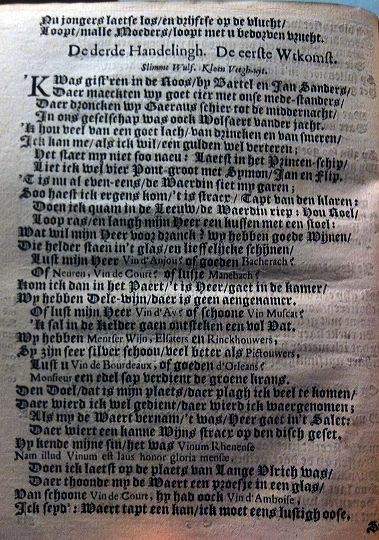 Nu jongers laetse los/ en dzijfse op de vlucht/
Loopt/ malle Moeders/ loopt met u bedorven vrucht.
De derde Handelingh. De eerste Wtkomst.
Slimme Wulf. Kleen Vetghaegt.
'K Was gist'ren in de Roos/ by Bartel en Jan Sanders/
Daer maeckten wy goet cier met onse mede-standers/
Daer droncken wy Gaeraus schier tot de middernacht/
In ons geselschap was oock Wolfaert vander jacht.
'k hou veel van een goet lach/ van drincken en van smeren/
Ick kan me/ als ick wil/ een gulden wel verteren;
Het staet my niet soo nau: Laetst in het Princen-schip/
Liet ick wel vier Pont-groot met Symon/ Jan en Flip.
'T is nu al even-eens/ de Waerdin siet my garen;
Soo haest ick ergens kom/ 't is stracx/ Tapt van den klaren:
Doen ick quam in de Leeuw/ de Waerdin riep: Hou Roel/
Loop ras/ en langh mijn Heer een kussen met een stoel:
Wat wil mijn Heer voor dranck? wy hebben goede Wijnen/
Die helder staen in 't glas/ en lieffelijcke schijnen/
Lust mijn Heer Vin d'Anjou? of goeden Bacherach?
Of Neuren, Vin de Court? of lust je Manebach?
Kom ick dan in het Paert/ 't is Heer/ gaet in de kamer/
Wy hebben Dele-wijn/ daer is geen aengenamer.
Of lust mijn Heer Vin d'Ay? of schoone Vin Muscat?
'k sal in de kelder gaen ontsteken een vol Vat.
Wy hebben Mentser Wijn, Elsaters en Rinckhouwers,
Sy zijn seer silver schoon/ veel beter als Pictouwers,
Lust u Vin de Bourdeaux, of goeden d'Orleans?
Monsieur een edel sap verdient de groene krans.
Den Doel/ dat is mijn plaets/ daer plagh ick veel te komen/
Daer wierd ick wel gedient/ daer wierd ick waergenomen;
Als my de Waert vernam/ 't was/ Heer gaet in 't Salet:
Daer wiert een kanne Wijns stracx op den disch geset.
Hy kende mijne sin/ het was Vinum Rhenense
Nam illud Vinum est laus honor gloria mensæ,
Doen ick laetst op de plaets van Lange Vlrich was/
Daer thoonde my de Waert een proefje in een glas/
Van schoone Vin de Court, hy had oock Vin d'Amboise,
Ick seyd': Waert tapt een kan/ ick moet eens lustigh oose,